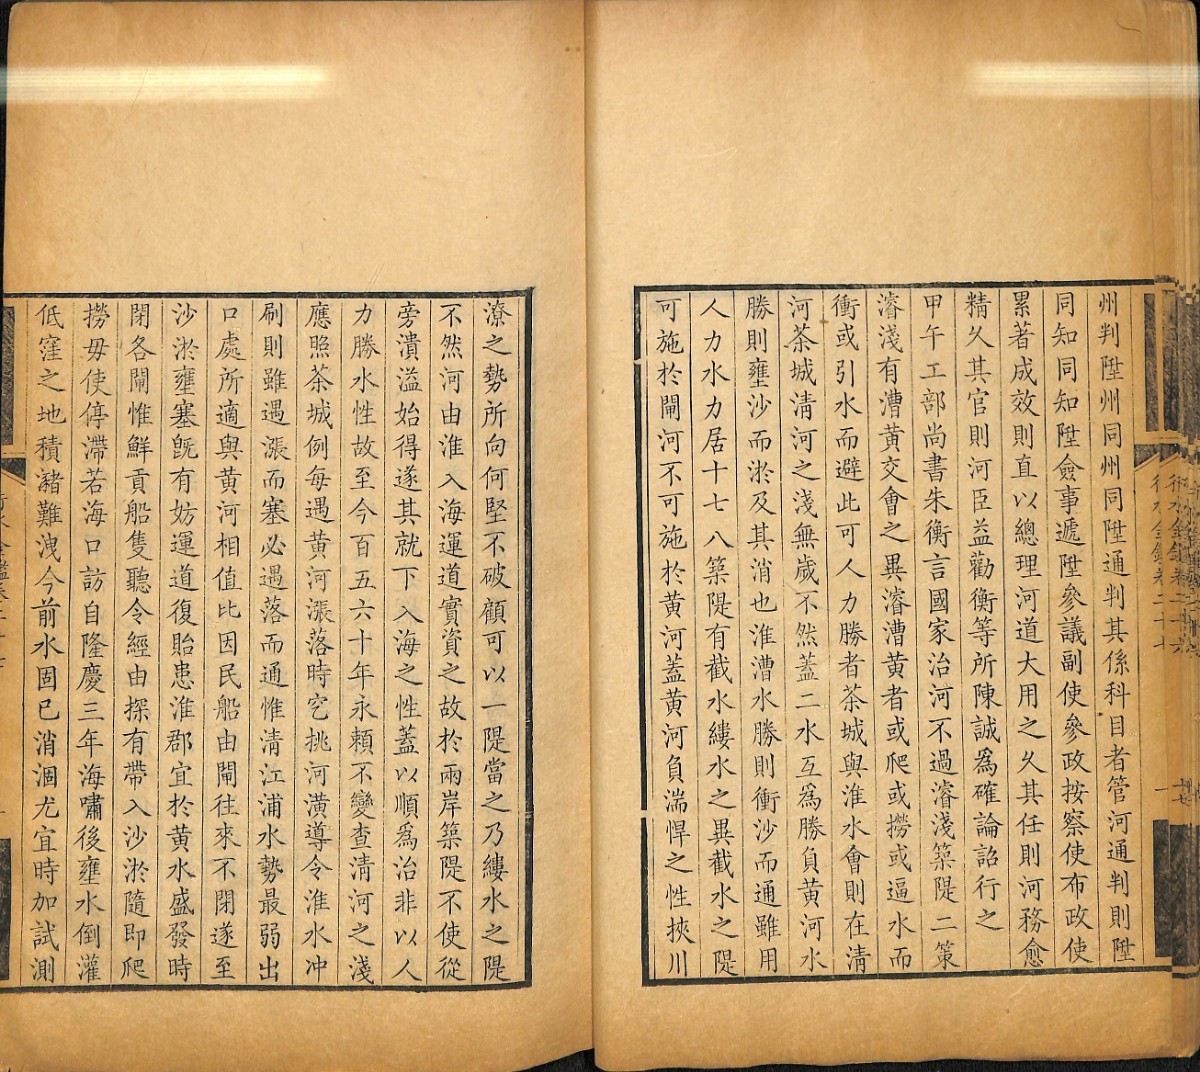 州判陞州同州同陞通判其係科目者管河通判則陞
同知同知陞僉事遞陞參議副使參政按察使布政使
累著成效則直以總理河道大用之久其任則河務愈
精久其官則河臣益勸衡等所陳誠爲確論詔行之
甲午工部尚書朱衡言國家治河不過濬淺築隄二策
濬淺有漕黃交會之異濬漕黃者或爬或撈或逼水而
衝或引水而避此可人力勝者茶城與淮水會則在清
河茶城清河之淺無歲不然蓋二水互爲勝負黃河水
勝則壅沙而淤及其消也淮漕水勝則衝沙而通雖用
人力水力居十七八築隄有截水縷水之異截水之隄
可施於閘河不可施於黃河蓋黃河負湍悍之性挾川
潦之勢所向何堅不破顧可以一隄當之乃縷水之隄
不然河由淮入海運道實資之故於兩岸築隄不使從
旁潰溢始得遂其就下入海之性蓋以順爲治非以人
力勝水性故至今百五六十年永賴不變查清河之淺
應照茶城例每遇黃河漲落時穵挑河潢導令淮水冲
刷則雖遇漲而塞必遇落而通惟清江浦水勢最弱出
口處所適與黃河相值比因民船由閘往來不閉遂至
沙淤壅塞旣有妨運道復貽患淮郡宜於黃水盛發時
閉各閘惟鮮貢船隻聽令經由探有帶入沙淤隨即爬
撈毋使停滯若海口訪自隆慶三年海嘯後壅水倒灌
低窪之地積瀦難洩今前水固已消涸尤宜時加試測